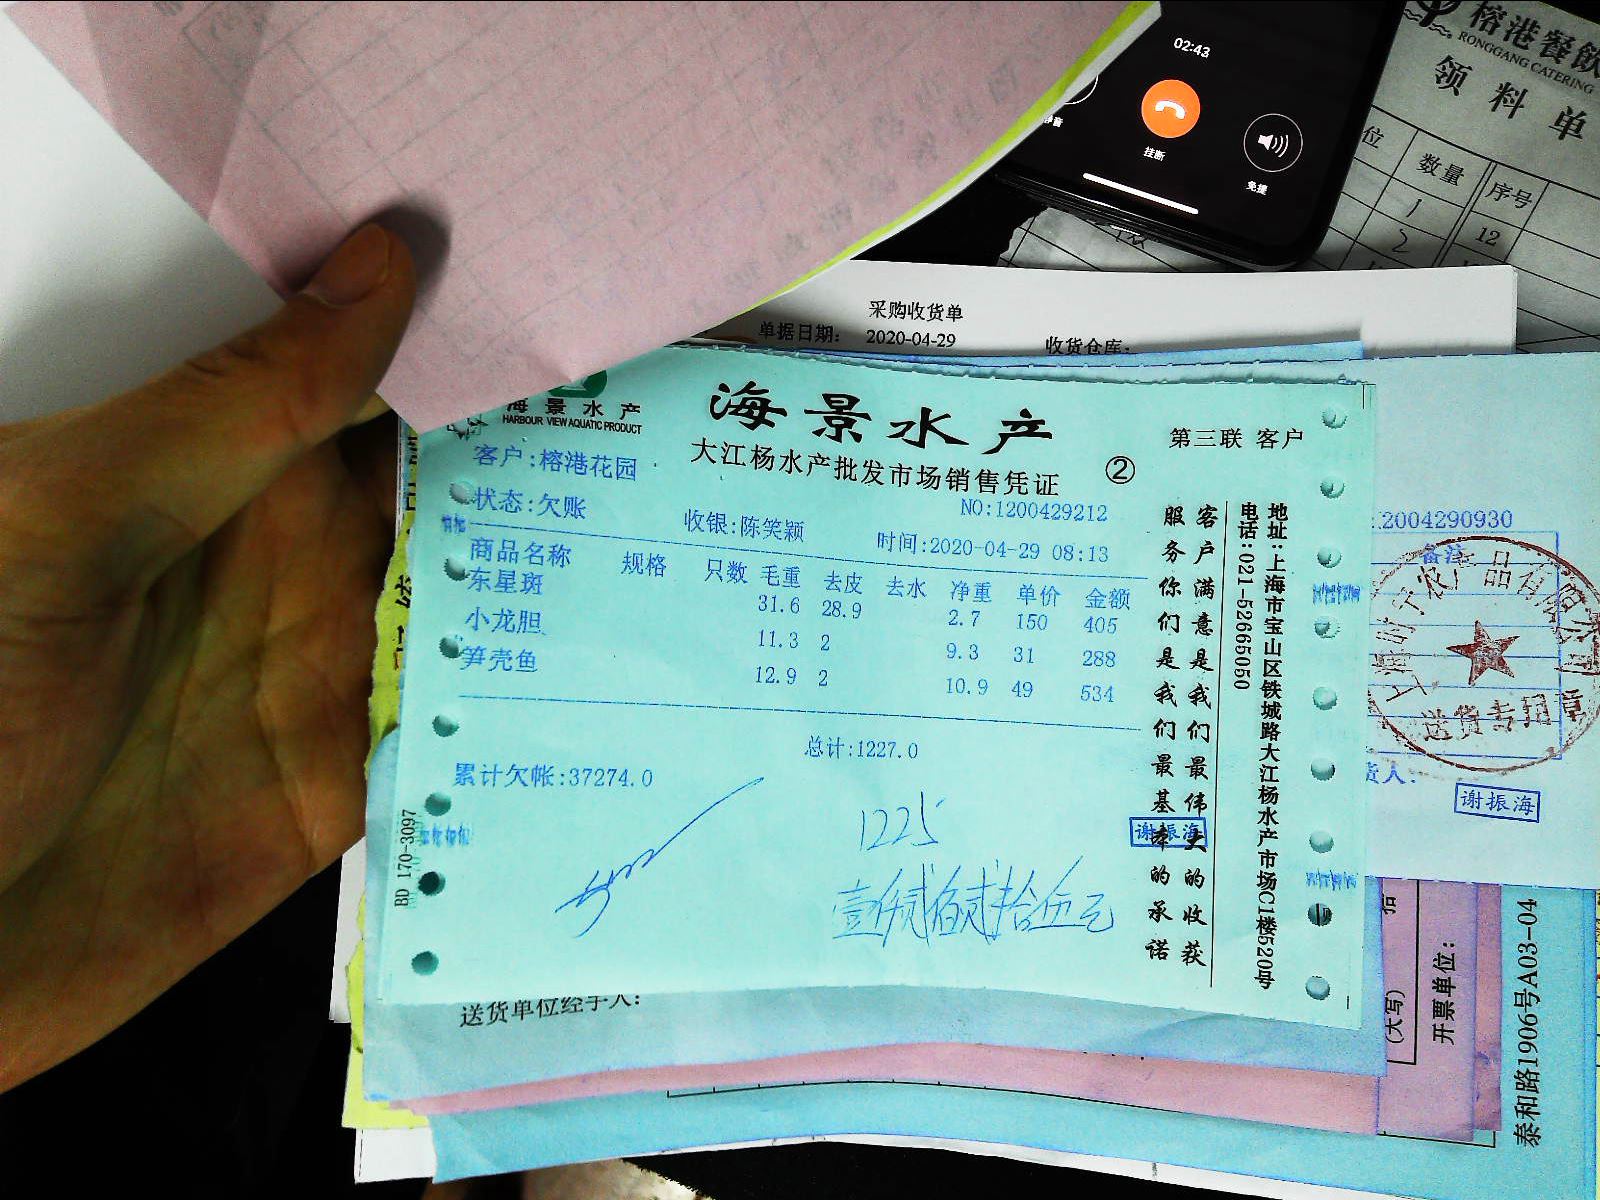 02:43
静音
挂断
免提
榕港餐飲
RONGGANG CATERING
领料单
位 数量 序号
1
2 12
采购收货单
单据日期： 2020-04-29 收货仓库：
海景水产
HARBOUR VIEW AQUATIC PRODUCT
海景水产
大江杨水产批发市场销售凭证
②
第三联 客户
客户:榕港花园
状态:欠账
收银:陈笑颖
NO:1200429212
时间:2020-04-29 08:13
商品名称 规格 只数 毛重 去皮 去水 净重 单价 金额
东星斑 31.6 28.9 2.7 150 405
小龙胆 11.3 2 9.3 31 288
笋壳鱼 12.9 2 10.9 49 534
总计:1227.0
累计欠帐:37274.0
1225
壹仟贰佰贰拾伍元
BD 170-3097
客户满意是我们最伟大的收获
服务你们是我们最基本的承诺
地址:上海市宝山区铁城路大江杨水产市场C1楼520号
电话:021-52665050
谢振海
2004290930
备注
送货专用章
货人:
谢振海
送货单位经手人:
(大写)
开票单位:
泰和路1906号A03-04